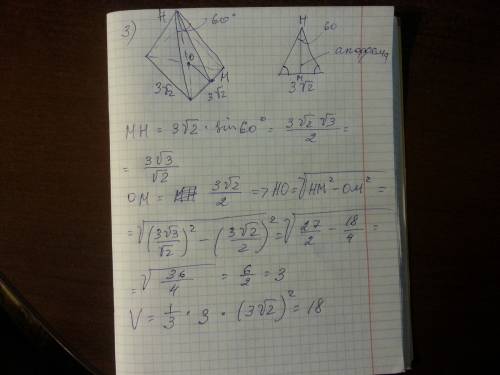 3)
H 60°
10
M
3√2 3√2
H
60
апофема
M
3√2
MH = 3√2 · sin60° = 3√2 √3 / 2 =
= 3√3 / √2
OM = 3√2 / 2 => HO = √(HM² - OM²) =
= √((3√3 / √2)² - (3√2 / 2)²) = √(27 / 2 - 18 / 4) =
= √(36 / 4) = 6 / 2 = 3
V = 1 / 3 · 3 · (3√2)² = 18